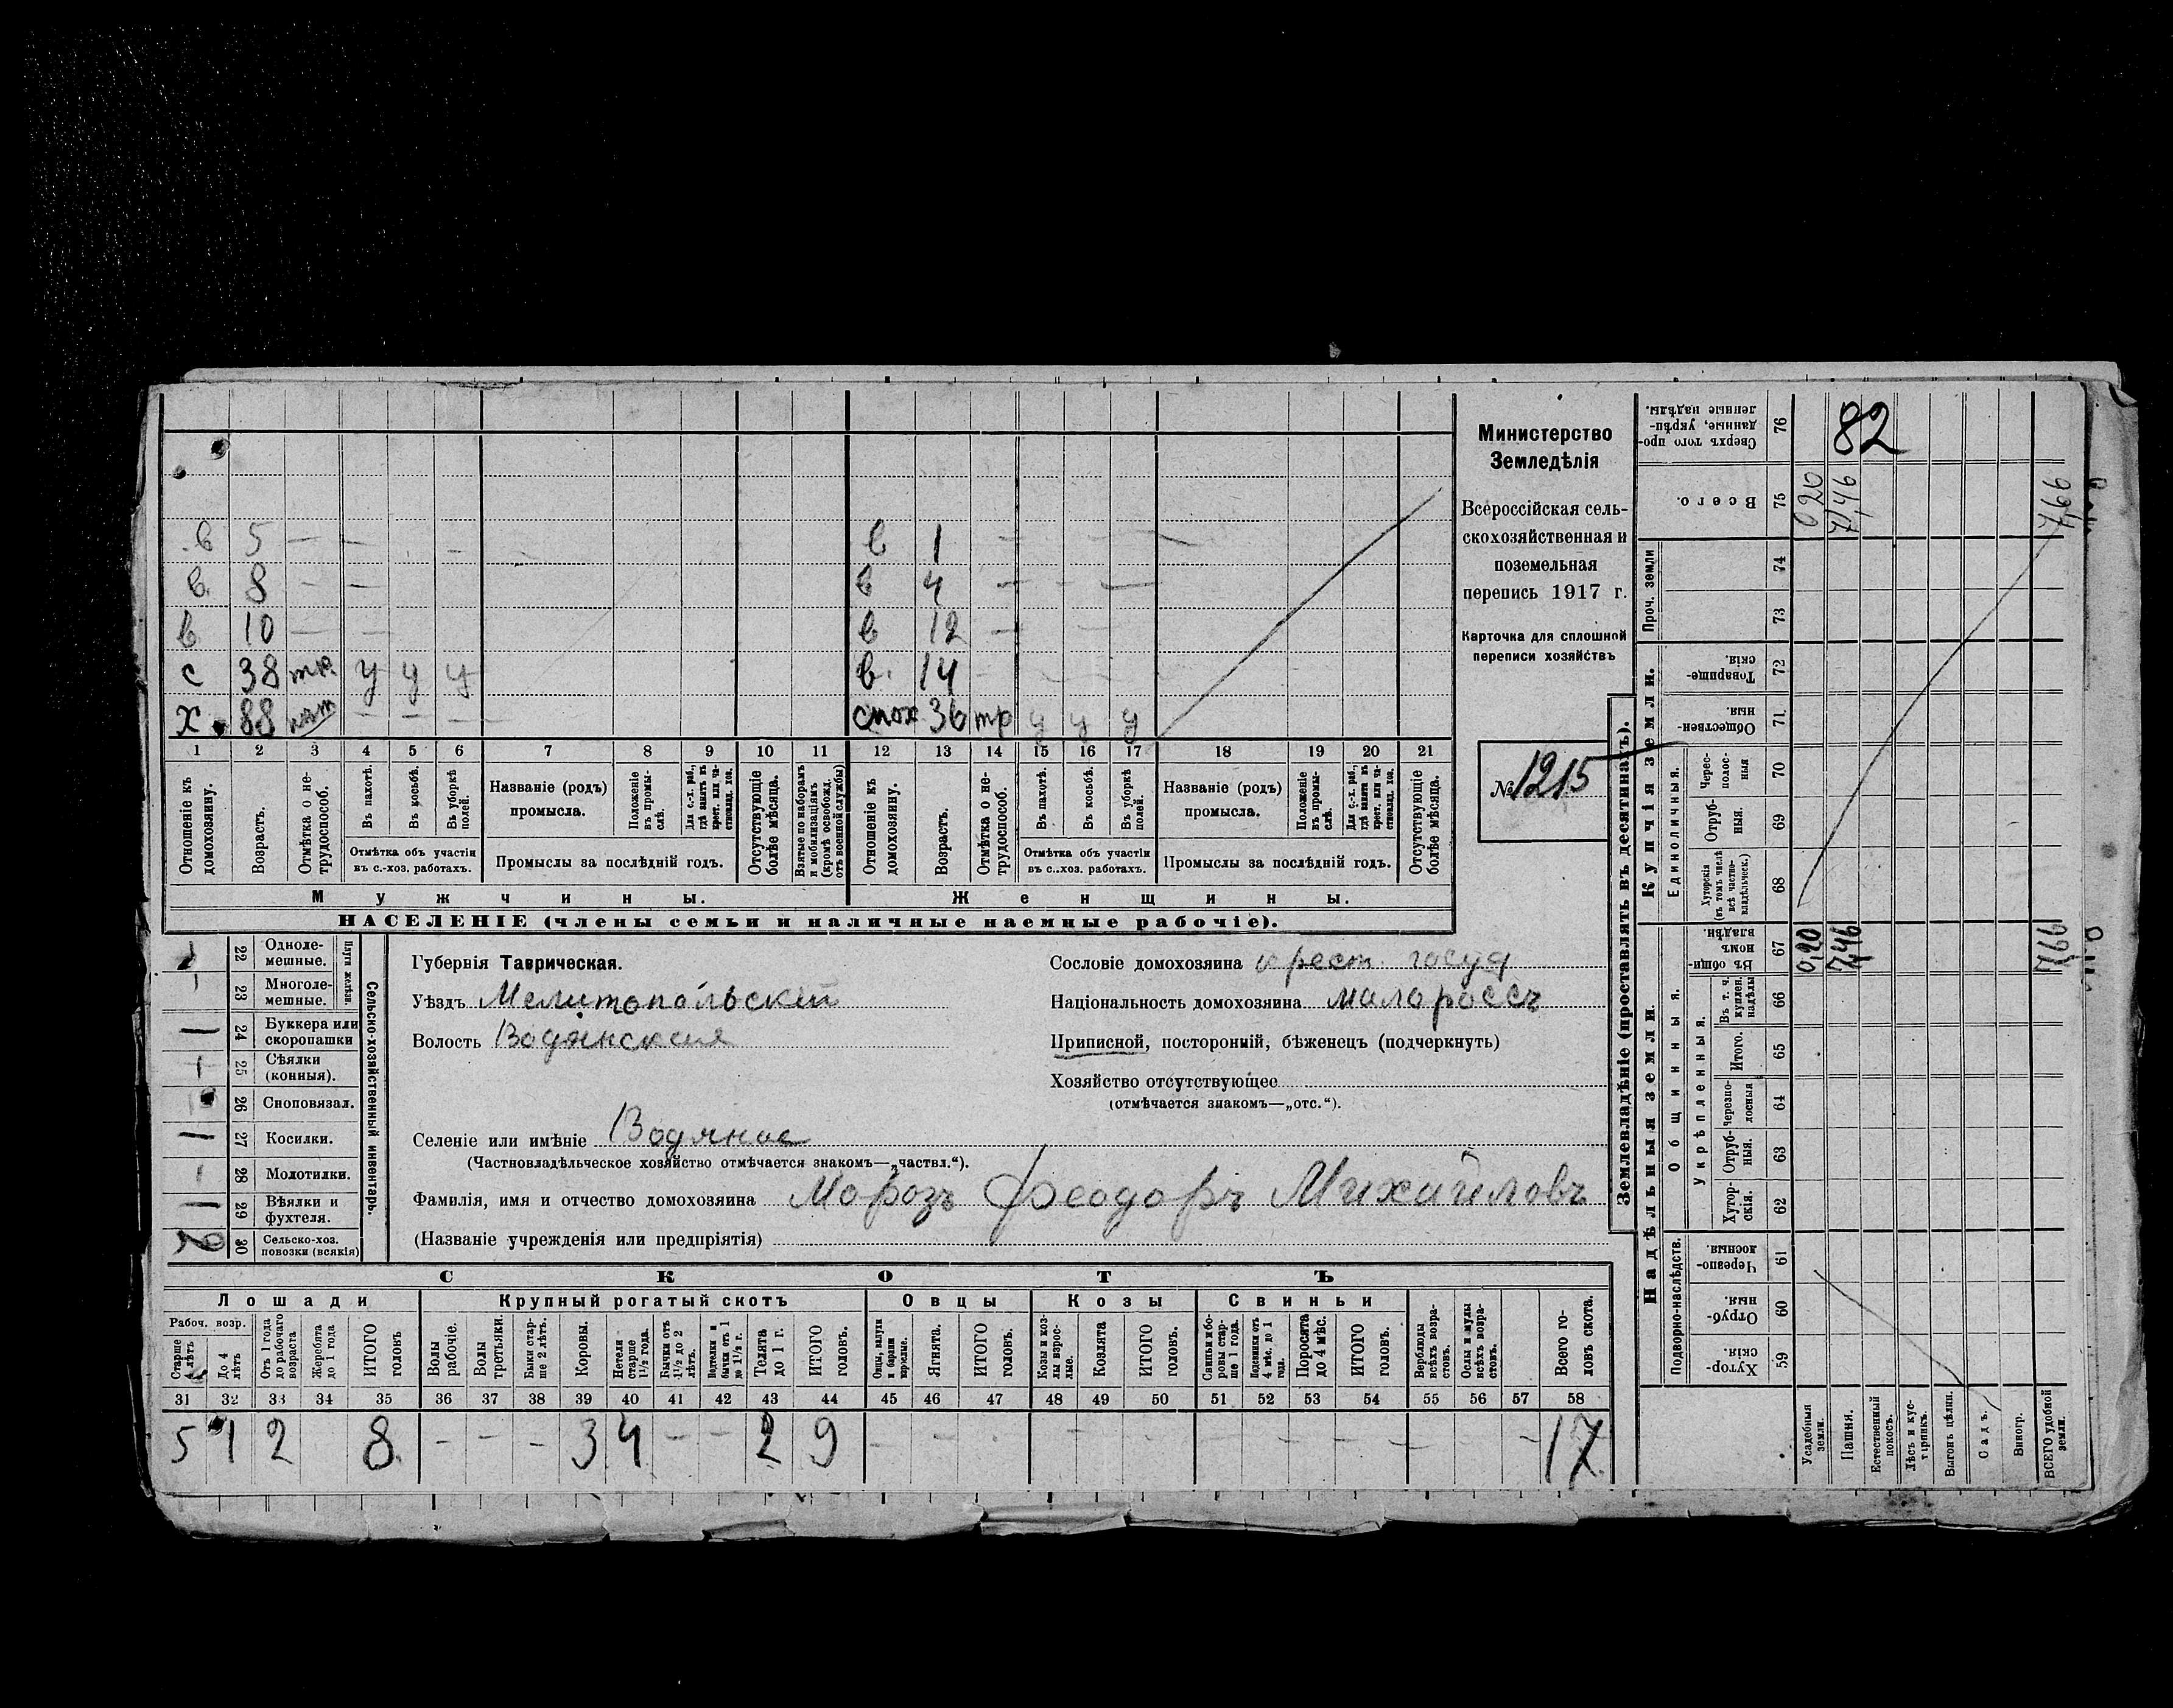 .в 5 — — — — в 1 — — —
в. 8 — — в 4 — — —
в 10 — — в 12 — —
с 38 тр. у у у в. 14 — — —
х. 88 — — — снох 36 тр у у у
1 2 3 4 5 6 7 8 9 10 11 12 13 14 15 16 17 18 19 20 21
Отношеніе къ домохозяину.
Возрастъ.
Отмѣтка о не-трудоспособ.
Въ пахотѣ.
Въ косьбѣ.
Въ уборкѣ полей.
Отмѣтка объ участіи
въ с.-хоз. работахъ.
Названіе (родъ)
промысла.
Положеніе въ промы-слѣ.
Для с.-х. раб., гдѣ занятъ въ крест. или ча-стновлад. хоз.
Промыслы за послѣдній годъ.
Отсутствующіе болѣе мѣсяца.
Взятые по наборамъ и мобилизаціямъ (кромѣ освобожд. отъ военной службы)
Отношеніе къ домохозяину.
Возрастъ.
Отмѣтка о не-трудоспособ.
Въ пахотѣ.
Въ косьбѣ.
Въ уборкѣ полей.
Отмѣтка объ участіи
въ с.-хоз. работахъ.
Названіе (родъ)
промысла.
Положеніе въ промы-слѣ.
Для с.-х. раб., гдѣ занятъ въ крест. или ча-стновлад. хоз.
Промыслы за послѣдній годъ.
Отсутствующіе болѣе мѣсяца.
Мужчины. Женщины.
НАСЕЛЕНІЕ (члены семьи и наличные наемные рабочіе).
Министерство
Земледѣлія
Всероссійская сель-
скохозяйственная и
поземельная
перепись 1917 г.
Карточка для сплошной
переписи хозяйствъ
№ 1215
22 Одноле-мешные.
23 Многоле-мешные.
Плуги желѣзн.
24 Буккера или скоропашки
25 Сѣялки (конныя).
26 Сноповязал.
27 Косилки.
28 Молотилки.
29 Вѣялки и фухтеля.
2 30 Сельско-хоз. повозки (всякія)
Сельско-хозяйственный инвентарь.
Губернія Таврическая.
Уѣздъ Мелитопольскій
Волость Водянская
Селеніе или имѣніе Водяное
(Частновладѣльческое хозяйство отмѣчается знакомъ—„частвл.“).
Фамилія, имя и отчество домохозяина Морозъ Феодоръ Михайловъ
(Названіе учрежденія или предпріятія)
Сословіе домохозяина крест. госуд
Національность домохозяина малороссъ
Приписной, посторонній, бѣженецъ (подчеркнуть)
Хозяйство отсутствующее
(отмѣчается знакомъ—„отс.“).
СКОТЪ
Лошади Крупный рогатый скотъ Овцы Козы Свиньи
Рабоч. возр.
Старше 4 лѣтъ
До 4 лѣтъ
Отъ 1 года до рабочаго возраста
Жеребята до 1 года
ИТОГО головъ
Волы рабочіе.
Волы третьяки.
Быки стар-ше 2 лѣтъ.
Коровы.
Нетели старше 1½ года.
Бычки отъ 1½ до 2 лѣтъ.
Телята до 1 г.
ИТОГО головъ.
Овцы, валухи и бараны взрослые.
Ягнята.
ИТОГО головъ.
Козы и коз-лы взрос-лые.
Козлята
ИТОГО головъ.
Свиньи и бо-ровы стар-ше 1 года.
Подсвинки отъ 4 мѣс. до 1 года.
Поросята до 4 мѣс.
ИТОГО головъ.
Верблюды всѣхъ возра-стовъ.
Ослы и мулы всѣхъ возра-стовъ.
Всего го-ловъ скота.
31 32 33 34 35 36 37 38 39 40 41 42 43 44 45 46 47 48 49 50 51 52 53 54 55 56 57 58
5 1 2 8 — — — 3 4 — — 2 9 — — — — — — — — — — — — — 17
Землевладѣніе (проставлять въ десятинахъ).
Надѣльныя земли. Купчія земли.
Подворно-наслѣдств.
Общинныя.
Укрѣпленныя.
Единоличныя.
Проч. земли
Хутор-скія. 59
Отруб-ныя. 60
Черезпо-лосныя. 61
Хутор-скія. 62
Отруб-ныя. 63
Черезпо-лосныя 64
Итого. 65
Въ т. ч. куплен. надѣлы 66
Въ общи-номъ владѣн. 67
Хуторскія (въ томъ числѣ всѣ частно-владѣльческ.) 68
Отруб-ныя. 69
Черес-полос-ныя 70
Обществен-ныя. 71.
Товарище-скія. 72
73
74
Всего. 75
Сверхъ того про-данные, укрѣп-ленные надѣлы. 76
Усадебныя земли. 0,20 0,20
Пашня. 7,46 7,46 82
Естественный покосъ.
Лѣсъ и кус-тарникъ.
Выгонъ цѣлин.
Садъ.
Виногр.
ВСЕГО удобной земли. 7,66 7,66